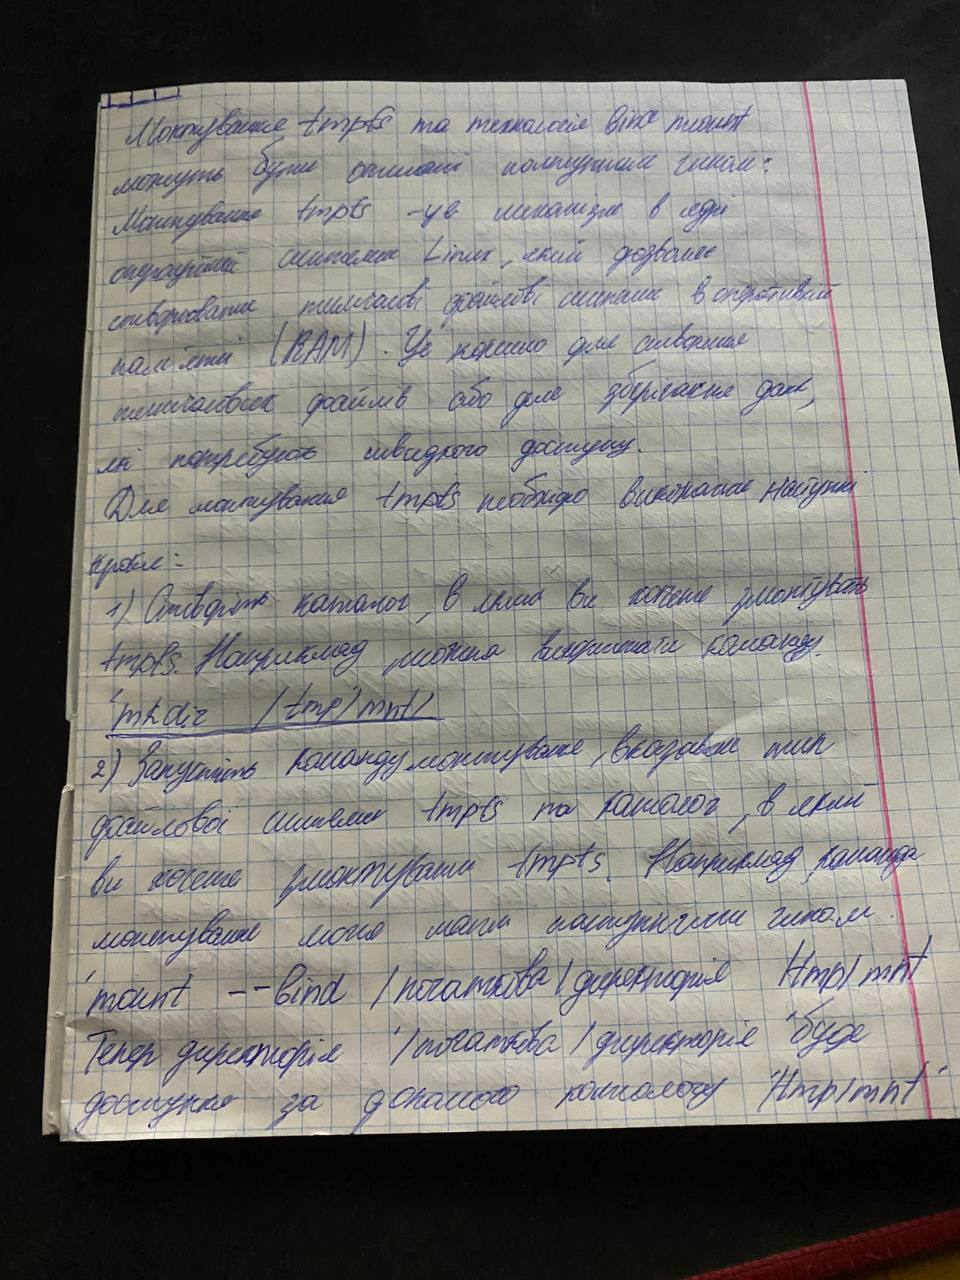 Монтування tmpfs та технологія bind mount
можуть бути описані наступним чином:
Монтування tmpfs - це механізм в ядрі
операційній системи Linux, який дозволяє
створювати тимчасові файлові системи в оперативній
пам'яті (RAM). Це корисно для створення
тимчасових файлів або для зберігання даних,
які потребують швидкого доступу.
Для монтування tmpfs необхідно виконання наступні
кроки:
1) Створіть каталог, в який ви хочете змонтувать
tmpfs. Наприклад, можна використати команду.
'mkdir /tmp/mnt/
2) Запустіть команду монтування, вказавши тип
файлової системи tmpfs та каталог, в який
ви хочете змонтувати tmpfs. Наприклад, команда
монтування може мати наступним чином.
'mount --bind /початкова/директорія /tmp/mnt
Тепер директорія '/початкова/директорія' буде
доступна за допомого каталогу '/tmp/mnt'